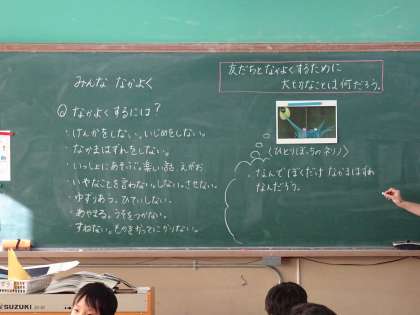 みんな なかよく
Q なかよくするには？
・けんかをしない。いじめをしない。
・なかまはずれをしない。
・いっしょにあそぶ。楽しい話 えがお
・いやなことを言わない。しない。させない。
・ゆずりあう。ひていしない。
・あやまる。うそをつかない。
すねない。
友だちとなかよくするために
大じなことは何だろう。
〈ひとりぼっちのネリノ〉
・なんで ぼくだけ なかまはずれ
なんだろう。
SUZUKI